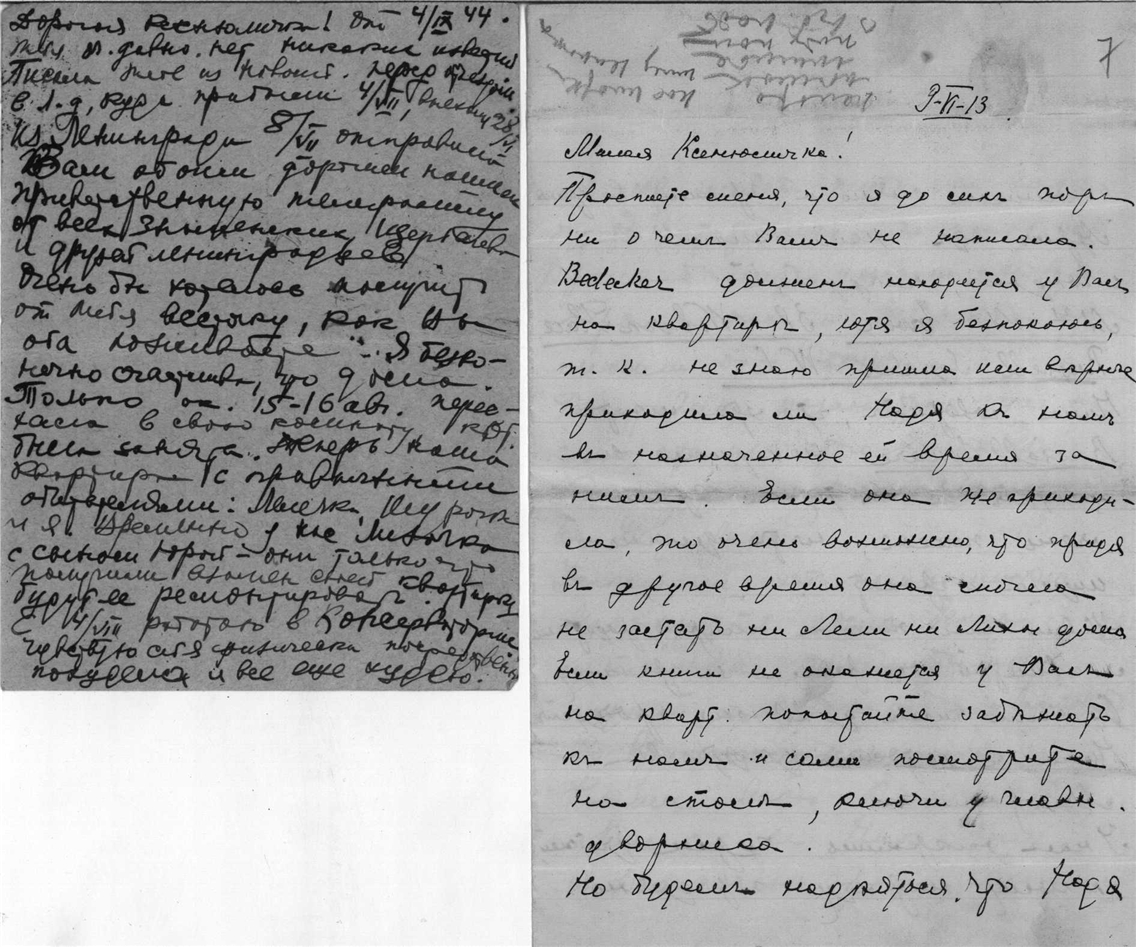 Дорогая Ксенюличка! От 4/IX 44.
тебя давно нет никаких известий
Писала тебе из Новосиб. перед отъездом
в Л-д, куда прибыли 4/VII, выехав 28/VI
Из Ленинграда 8/VII отправила
Вам обоим
приветственную телеграмму
от всех Знаменских, Щербачева
и друзей ленинградцев
Очень бы хотелось получить
от тебя весточку, как Вы
оба поживаете. Я беско-
нечно счастлива, что дома.
Только ок. 15-16 авг. перее-
хала в свою комнату, кот.
была занята. Теперь наша
квартира с правильными
обитателями:
и я. Временно у нас Лилечка
с сыном Юрой - они только что
получили взамен своей квартиру
будут ее ремонтировать.
С 4/VIII работаю в Консерватории
Чувствую себя физически посредственно
похудела и все еще худею.
7
9-VI-13
Милая Ксенюличка!
Простите меня, что я до сихъ поръ
ни о чемъ Вамъ не написала.
Bedeker долженъ находится у Васъ
на квартирѣ, хотя я безпокоюсь,
т. к. не знаю пришла или вѣрнѣе
приходила ли Надя къ намъ
въ назначенное ей время за
нимъ. Если она не приходи-
ла, то очень возможно, что придя
въ другое время она могла
не застать ни Лели ни Лили дома
Если книги не окажется у Васъ
на кварт. попытайте забѣжать
къ намъ и сами посмотрите
на столѣ, ключи у главн.
дворника.
Но будемъ надѣяться, что Надя